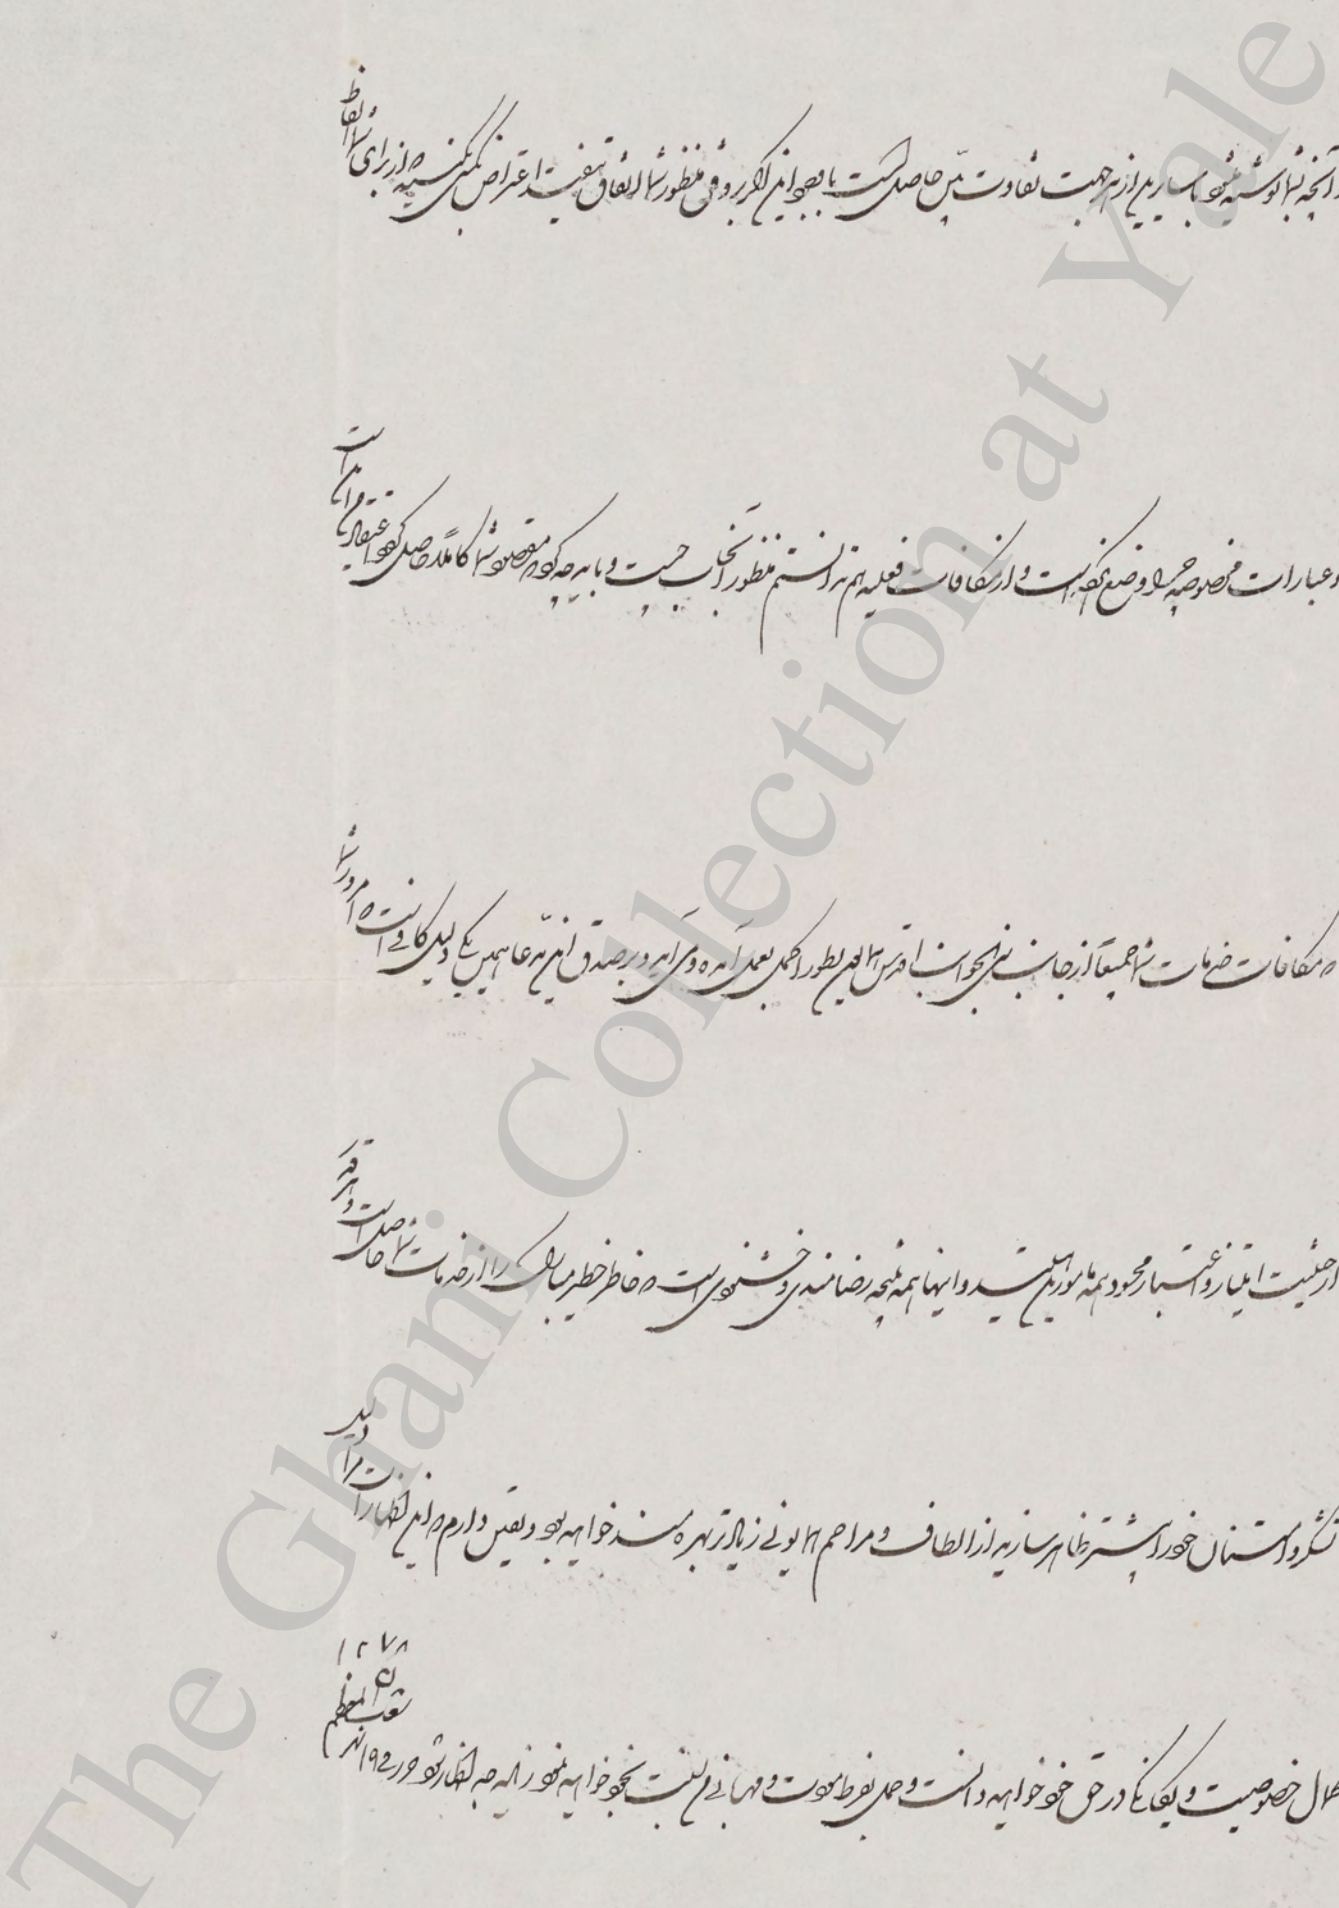 آنچه بشما نوشته میشود با سایرین از هر جهت تفاوت بین حاصل است با وجود این اگر بر وفق منظور شما اتفاق نیفتد اعتراض نمیکنید که از برای شما الفاظ
و عبارات مخصوصه چرا وضع نکرده است و از مکافات فعلیه هم ندانستم منظور آنجناب چیست و باید چه کرد که مقصود شما کاملا حاصل گردد اعتقاد من این است
که مکافات خدمات شما جمیعا از جانب سنی الجوانب اقدس همایون بطور اکمل بعمل آمده و می آید و بر صدق این مدعا همین یک دلیل کافی است که امروز شما
از حیثیت امتیاز و اعتبار محسود همه مامورین هستید و اینها همه نتیجه رضامندی و خشنودی است که خاطر خطیر مبارک را از خدمات شما حاصل است و هر قدر
تشکر و امتنان خود را بیشتر ظاهر سازید از الطاف و مراحم همایونی زیادتر بهره مند خواهید بود و یقین دارم که این اظهارات مرا دلیل
کمال خصوصیت و یگانگی در حق خود خواهید دانست و حمل بفرط مودت و مهربانی من نسبت بخود خواهید نمود زیاده چه اظهار شود فی ۱۹ شهر
شعبان المعظم
۱۲۷۸
The Ghani Collection at Yale